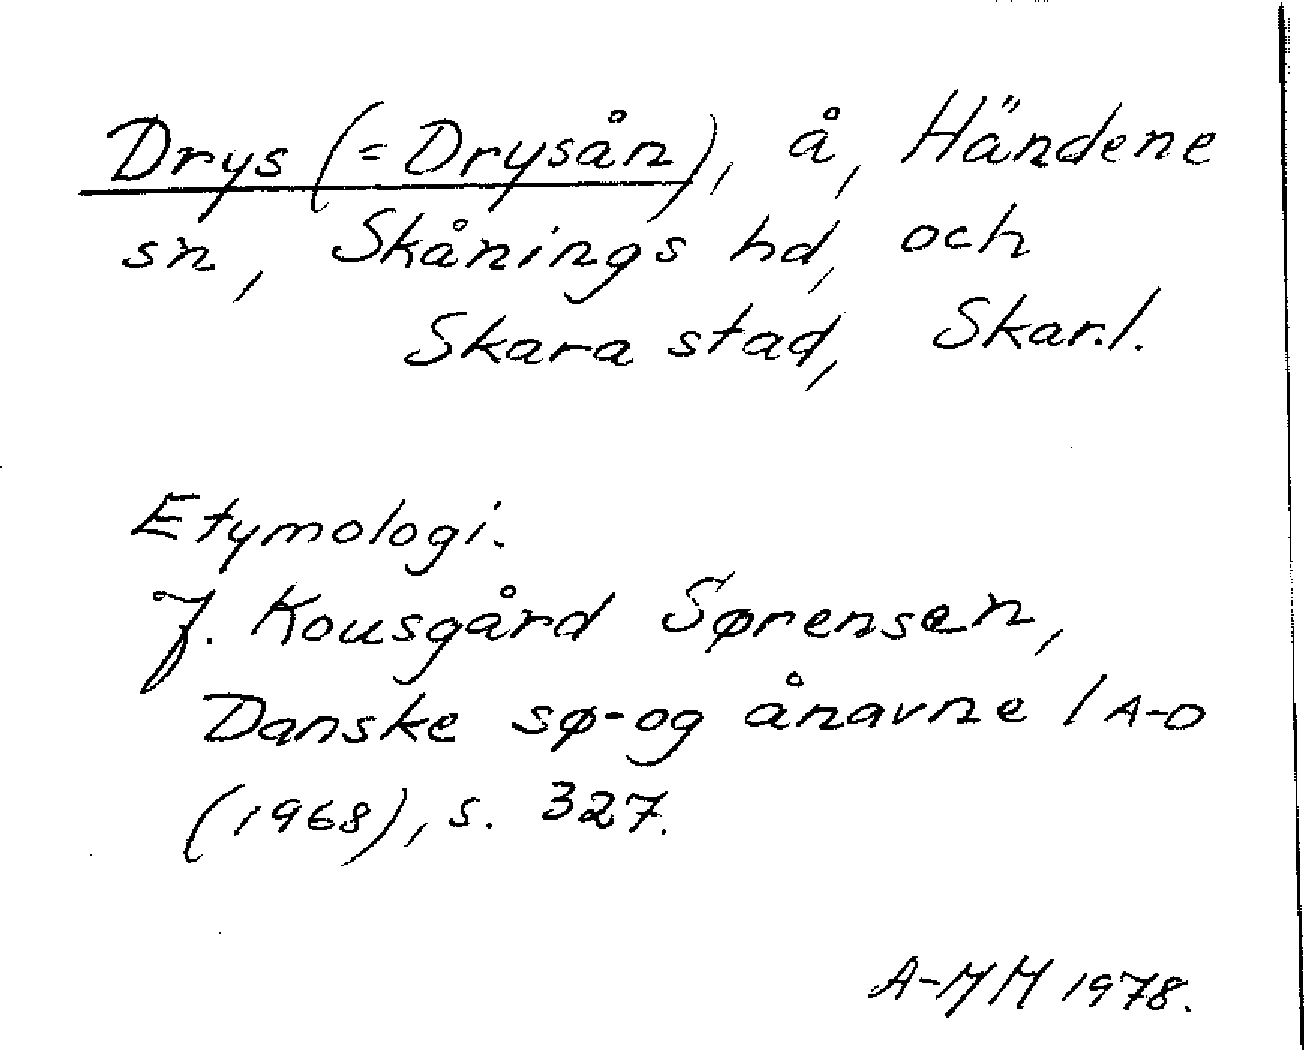 Drys (= Drysån), å, Händene
sn, Skånings hd, och
Skara stad, Skar.l.
Etymologi.
J. Kousgård Sørensen,
Danske sø- og ånavne 1 A-D
(1968), s. 327.
A-MM 1978.